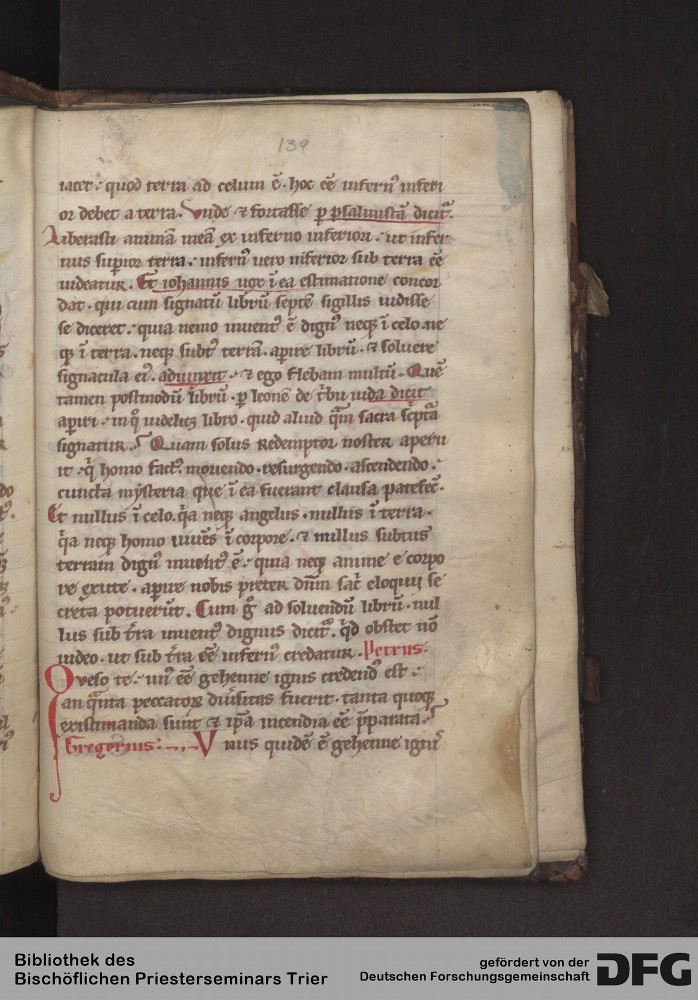 139
iacet · quod terra ad celum ē · hoc eē infernꝰ inferi
or debet a terra. Vnde ⁊ fortasse ꝑ psalmistā dicit᷑.
Liberasti animā meā ex inferno inferiori · ut infer
nus supior terra · infernꝰ uero inferior sub terra eē
uideatur. Et iohannis uox ī ea estimatione concor
dat · qui cum signatū librū septē sigillis uidisse
se diceret · quia nemo inuentꝰ ē dignꝰ neqꝫ ī celo · ne
qꝫ ī terra · neqꝫ subtꝰ terrā · apire librū · ⁊ soluere
signacula eiꝰ · adiunxit · ⁊ ego flebam multū · Quē
tamen postmodū librū · ꝑ leonē de tͥbu iuda dicit
apiri · in qͦ uidelicꝫ libro · quid aliud qͣm sacra scͥptͣ
signatur. Quam solus Redemptor noster aperu
it · qͥ homo factꝰ · moriendo · resurgendo · ascendendo ·
cuncta mysteria que ī ea fuerant clausa patefec̄.
Et nullus ī celo · qͥa neqꝫ angelus · nullus ī terra ·
qͥa neqꝫ homo uiuēs ī corpore · ⁊ nullus subtus
terram dignꝰ inuentꝰ ē · quia neqꝫ anime e corpo
re exute · apire nobis preter dn̄m sac̄ eloquij se
creta potuerūt. Cum gͦ ad soluendū librū · nul
lus sub t͛ra inuentꝰ dignus dicit᷑ · qͥd obstet nō
uideo · ut sub t͛ra eē infernꝰ credatur. Petrus·
Qveso te · unꝰ eē gehenne ignis credendꝰ est ·
an qͣnta peccatoꝝ diuͥsitas fuerit · tanta quoqꝫ
existimanda sunt ⁊ ip̄a incendia eē p̄parata ·
Gregorius: Vnus quidē ē gehenne ignis
Bibliothek des
Bischöflichen Priesterseminars Trier
gefördert von der
Deutschen Forschungsgemeinschaft
DFG